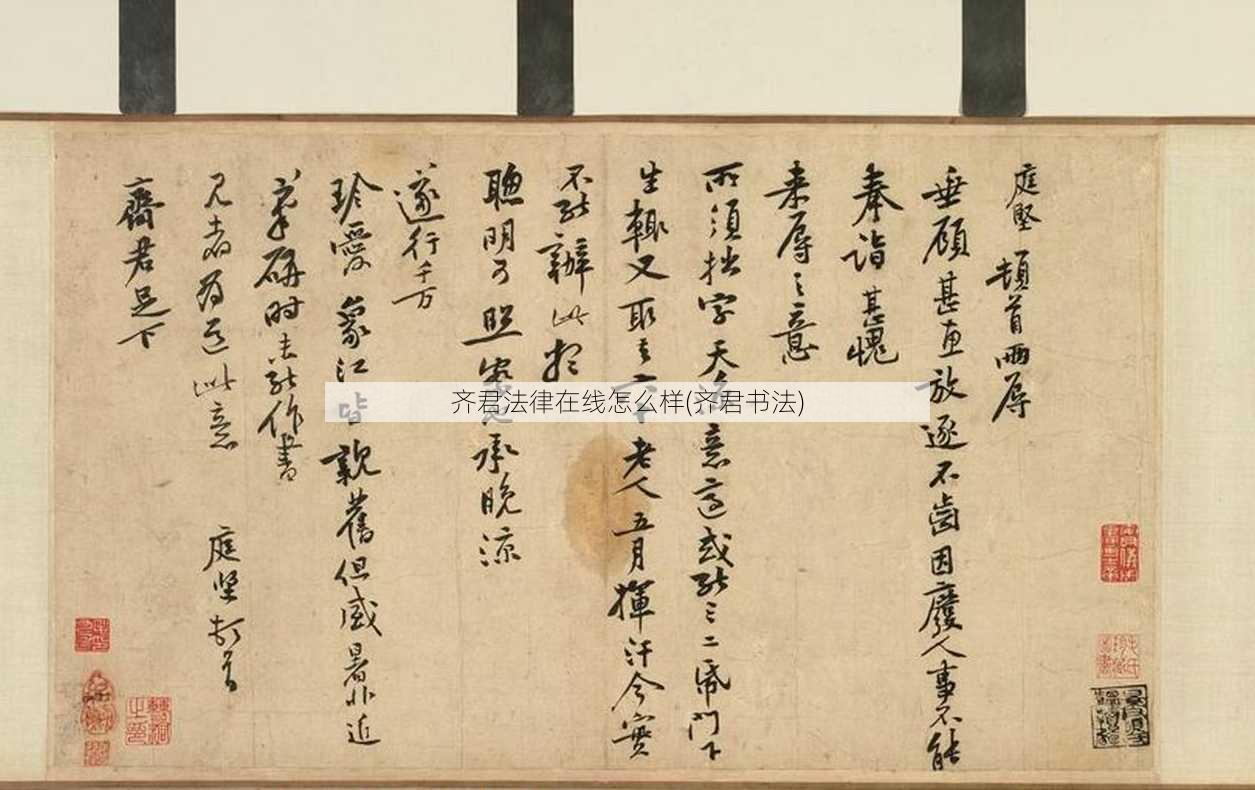 庭堅頓首兩辱
垂顧甚惠放逐不齒因廢人事不能
奉詣甚愧
来辱之意
所須拙字天意適或能三二紙門下
生輒又取去老人五月揮汗今實
不能辦此想
聰明可照察承晚涼
遂行千万
珍愛象江皆親舊但盛暑非近
筆研時未能作書
見者為道此意 庭堅頓首
齊君足下
齐君法律在线怎么样(齐君书法)